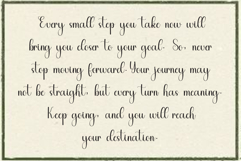 Every small step you take now will
bring you closer to your goal. So, never
stop moving forward Your journey may
not be straight, but every turn has meaning.
Keep going, and you will reach
your destination.